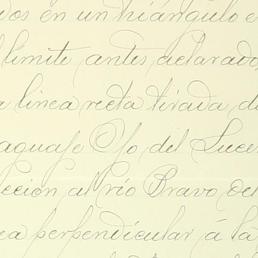 en un triángulo e
límite antes aclarado,
a linea recta tirada d
aguaje Ojo del Luce
ección al río Bravo del
ea perpendicular á la